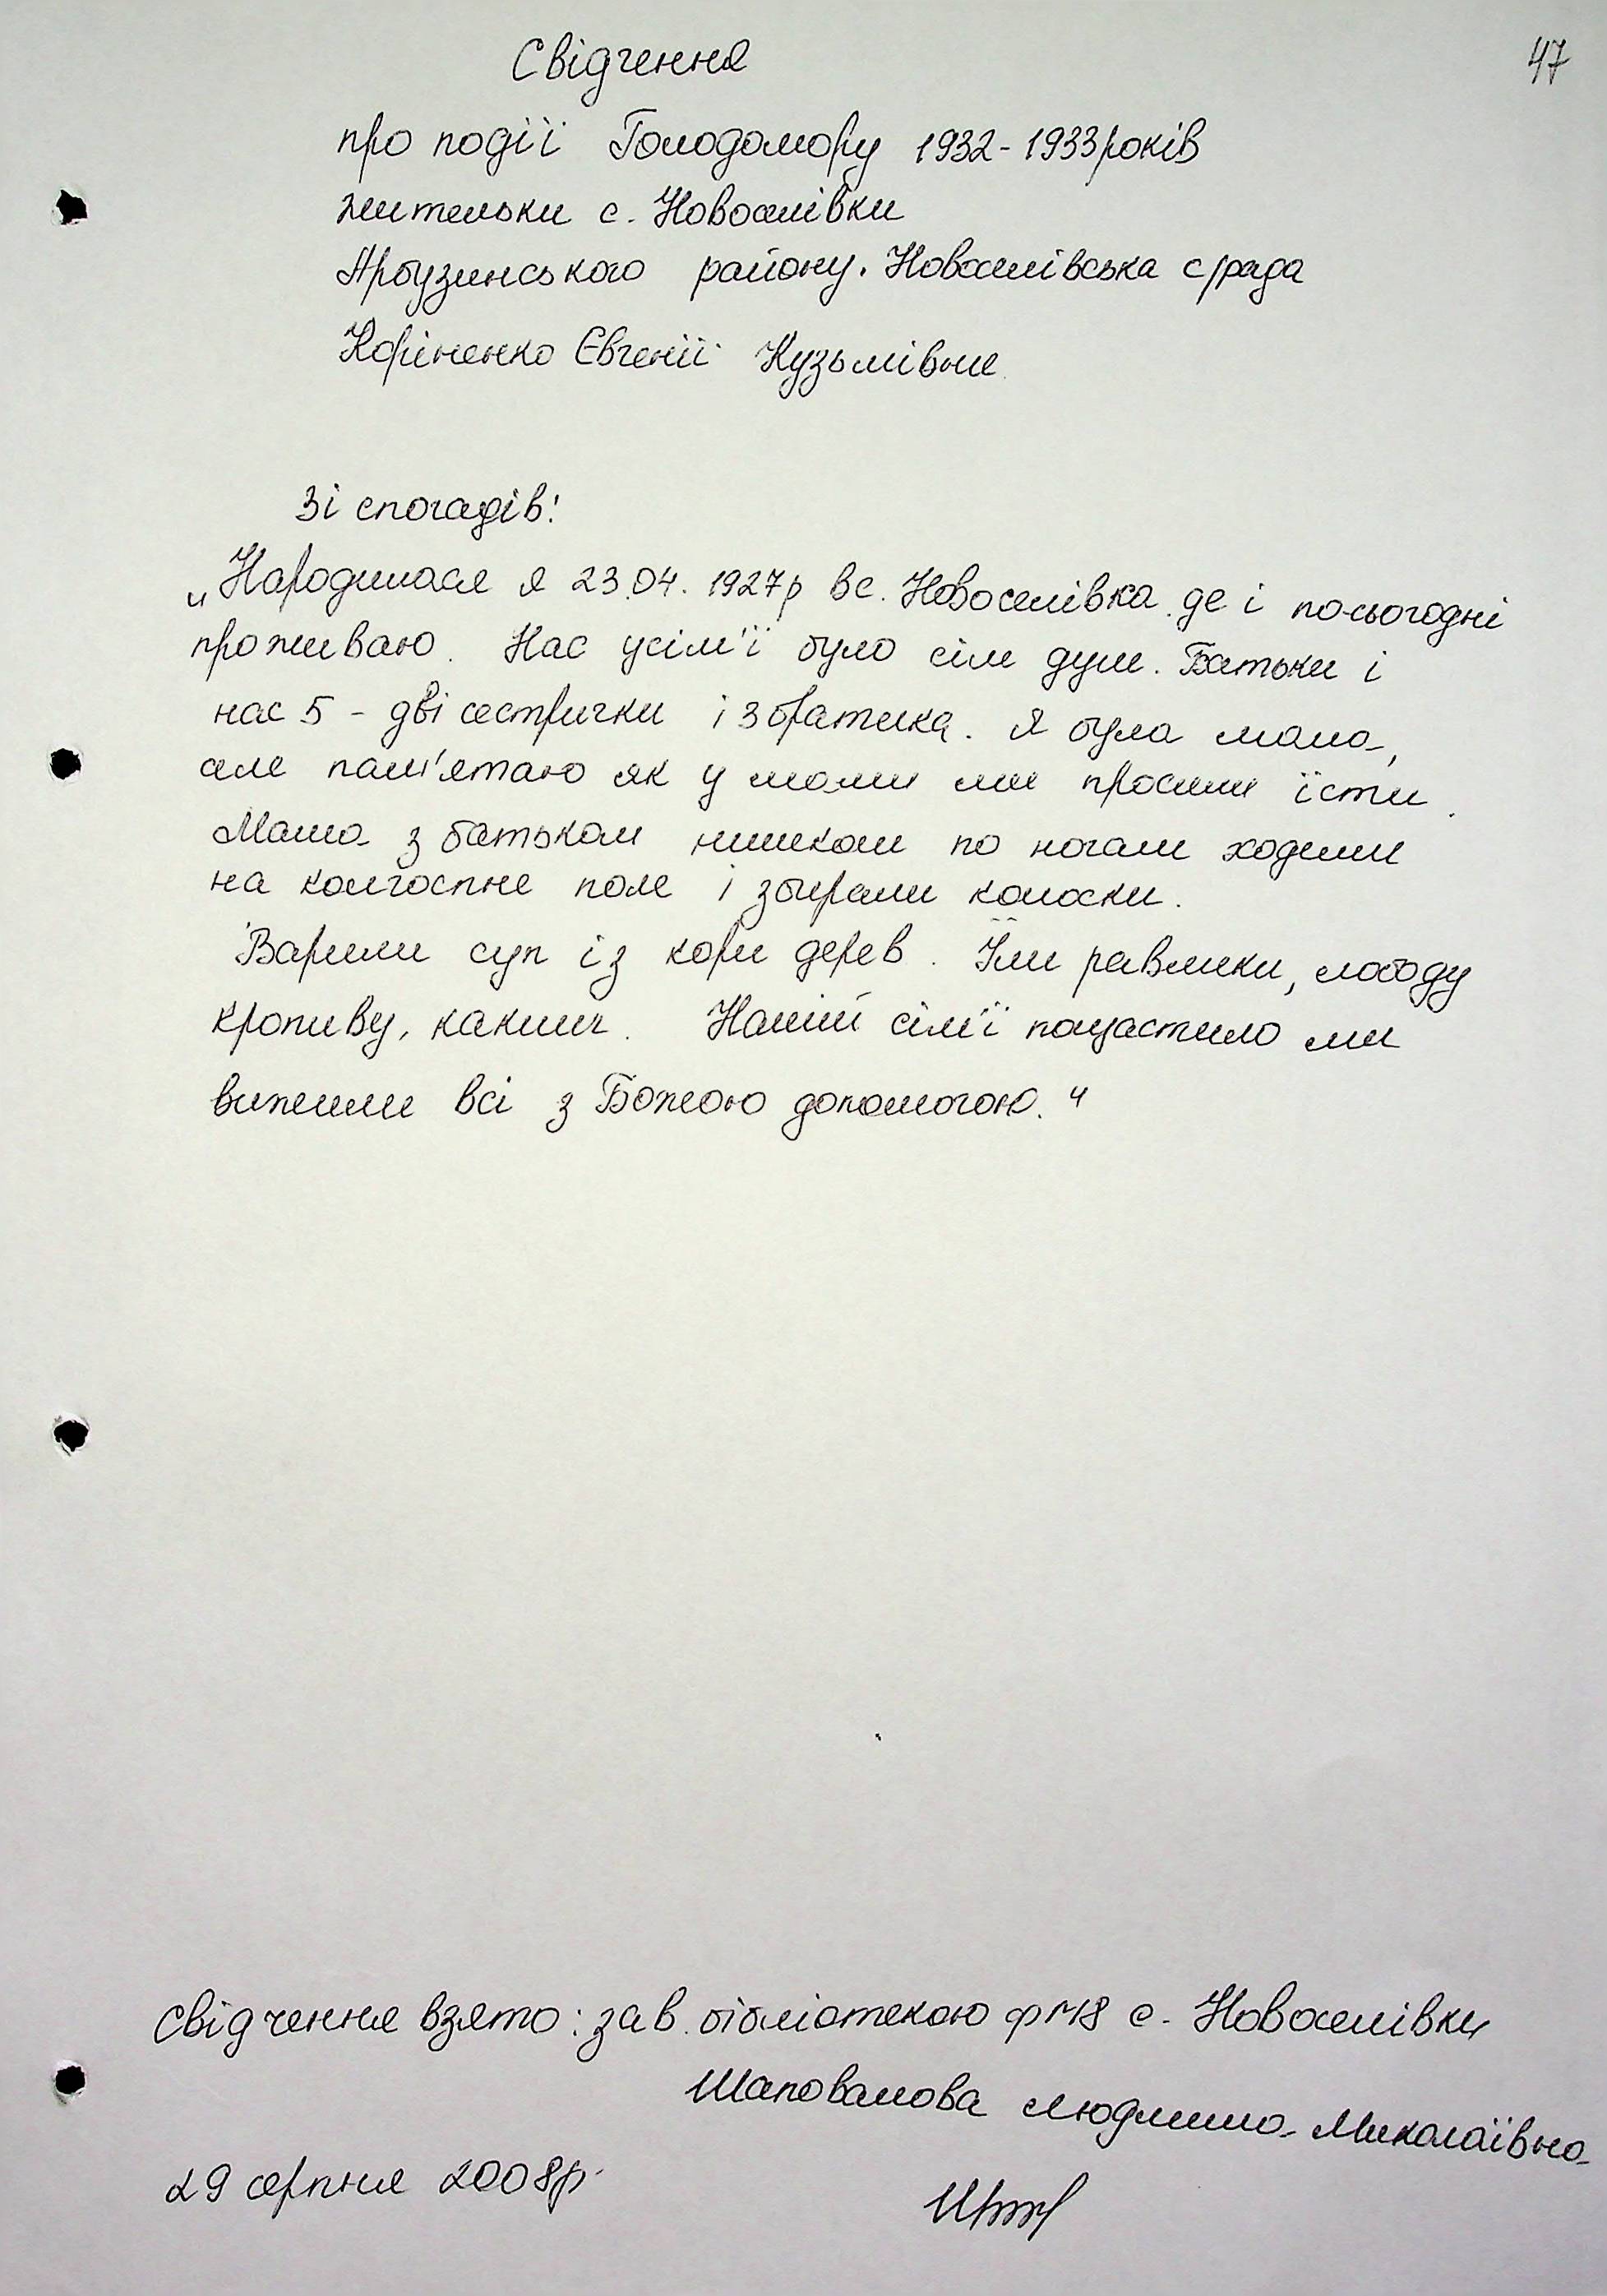 47
Свідчення
про події Голодомору 1932-1933 років
жительки с. Новоселівки
Арбузинського району. Новоселівська с/рада
Коріненко Євгенії Кузьмівни.
Зі спогадів:
„Народилася я 23.04.1927р в с. Новоселівка де і по сьогодні
проживаю. Нас у сім'ї було сім душ. Батьки і
нас 5 - дві сестрички і 3 братика. Я була мала,
але пам'ятаю як у мами ми просили їсти.
Мама з батьком нишком по ночам ходили
на колгоспне поле і збирали колоски.
Варили суп із кори дерев. Їли равлики, лободу
кропиву, калачик. Нашій сім'ї пощастило ми
вижили всі з Божою допомогою."
Свідчення взято: зав. бібліотекою ф №18 с. Новоселівки
Шаповалова Людмила Миколаївна
29 серпня 2008р.